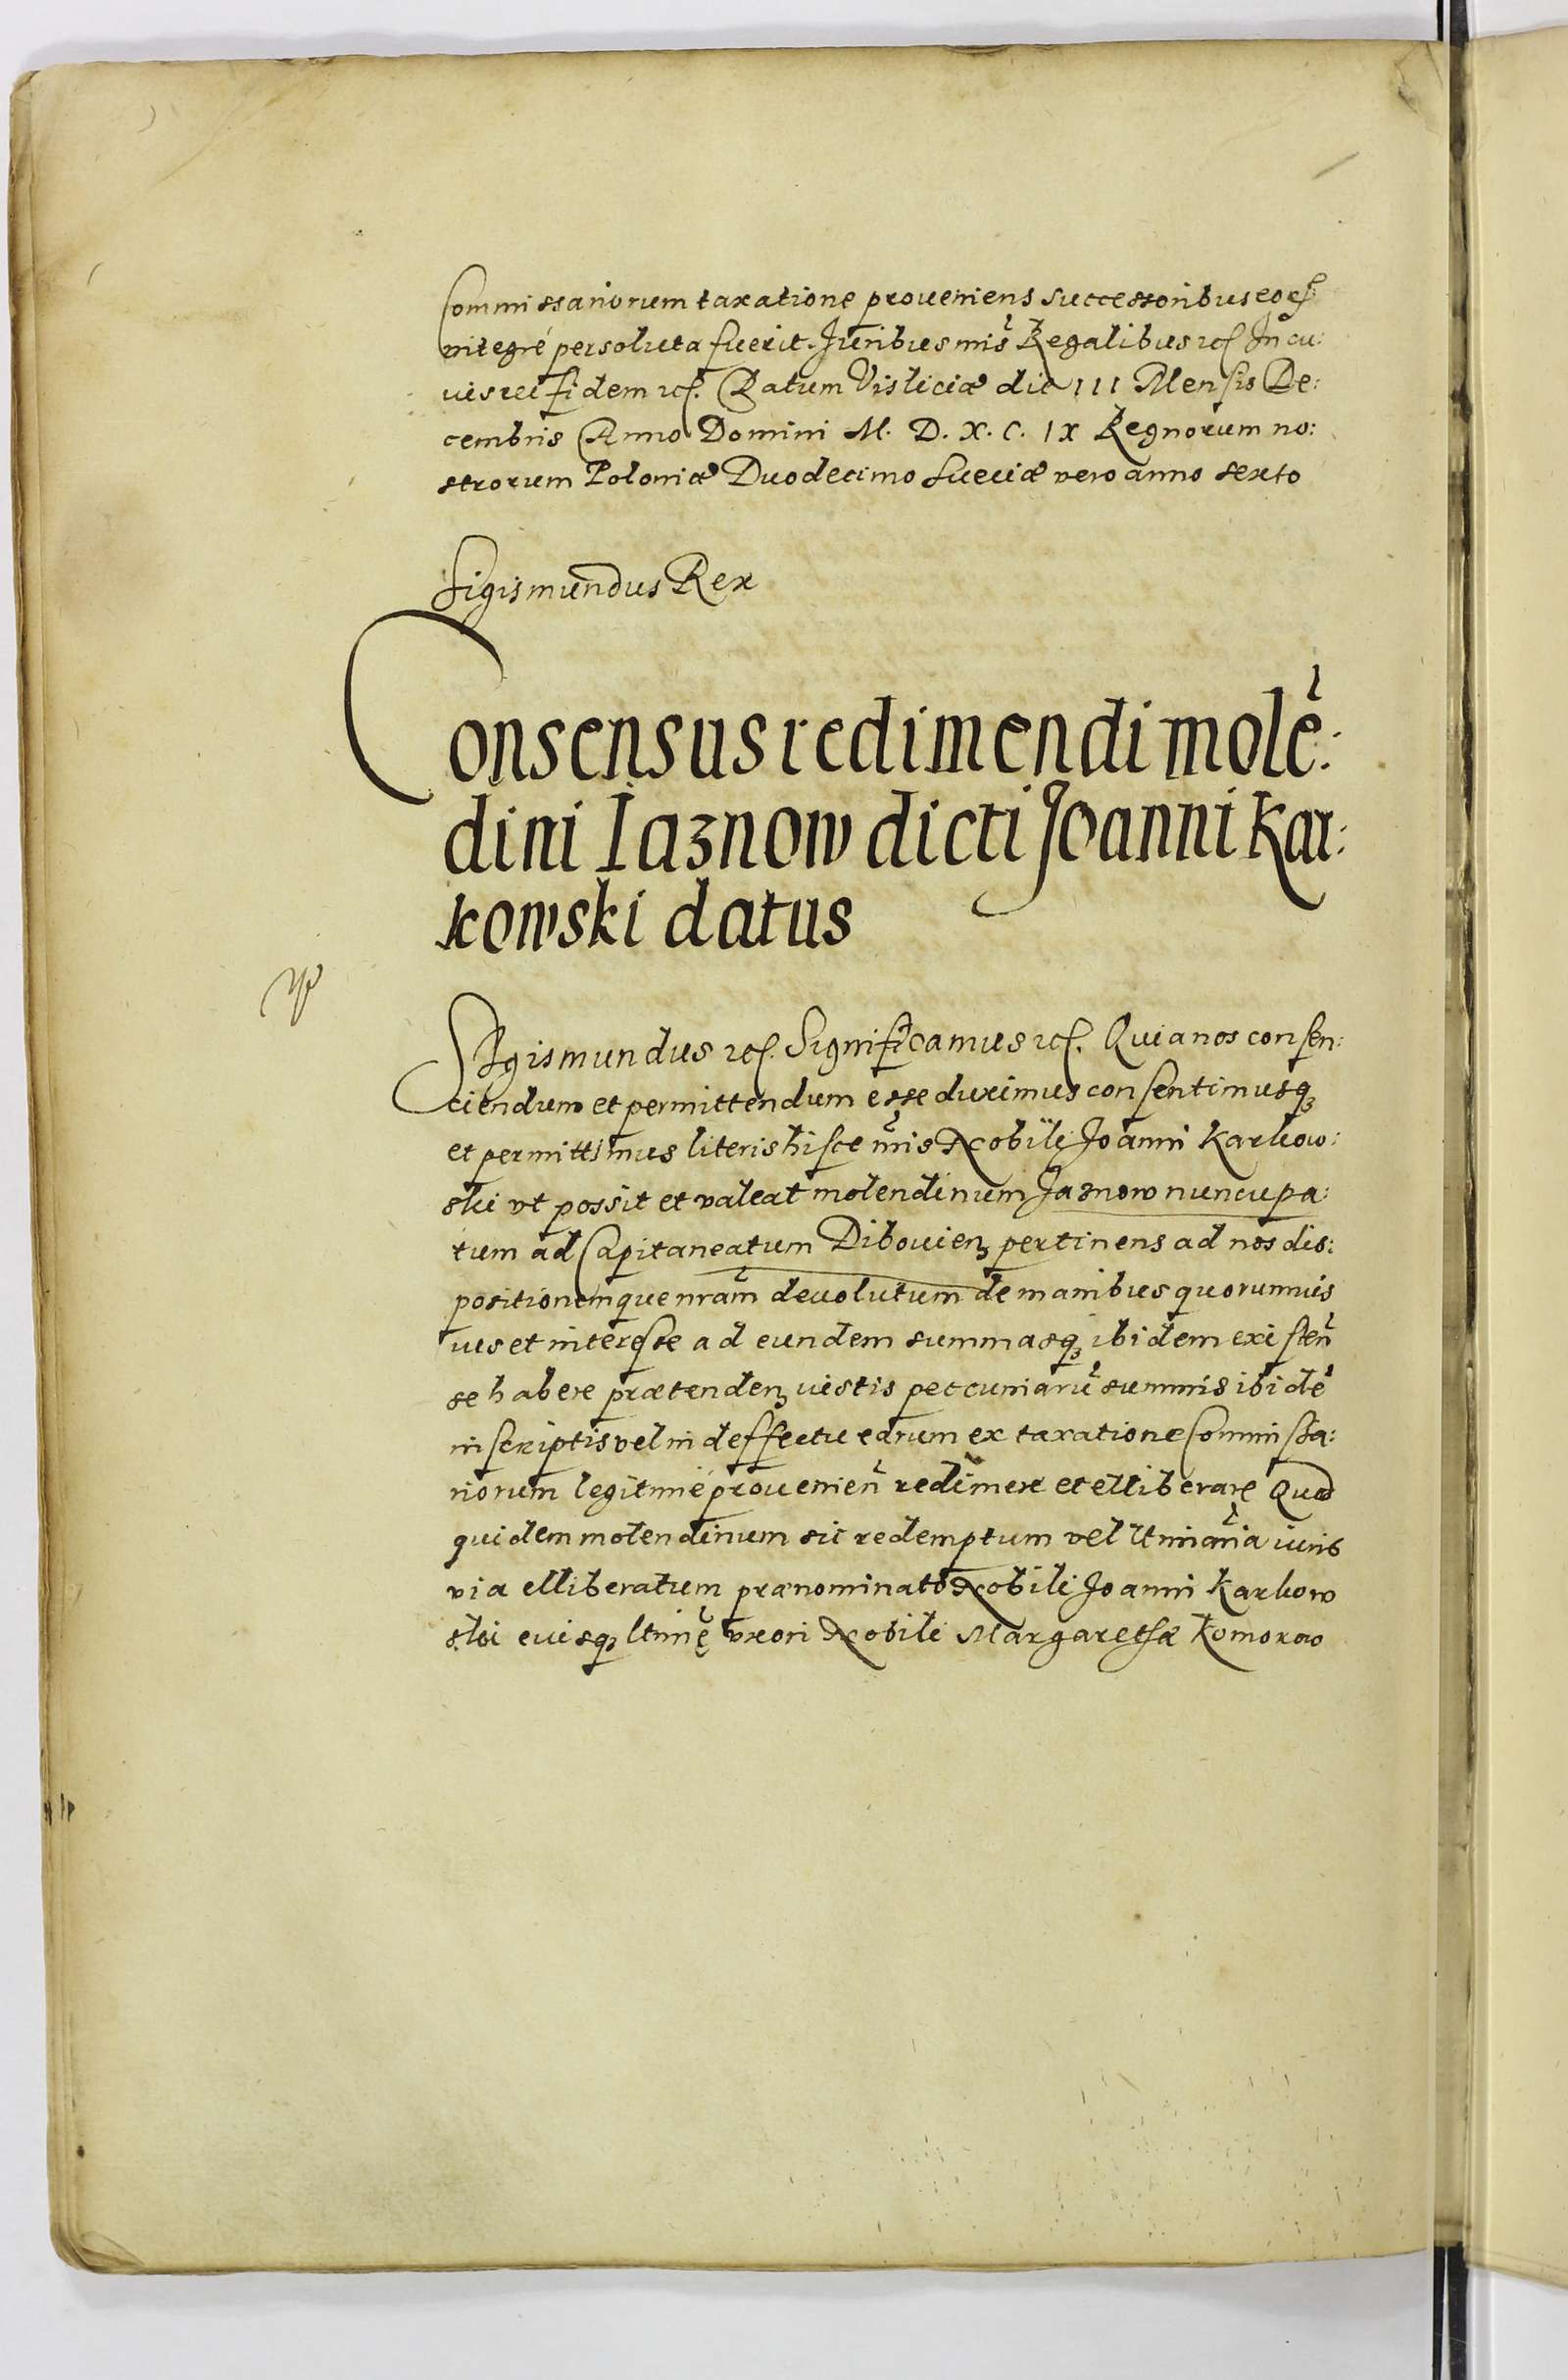 Commissariorum taxatione proueniens successoribus eorꝭ
integrè persoluta fuerit. Juribus nr̃is Regalibus ꝛcꝭ In cu:
ius rei fidem ꝛcꝭ. Datum Visliciæ die III Mensis De:
cembris Anno Domini M. D. X. C. IX Regnorum no:
strorum Poloniæ Duodecimo Sueciæ vero anno sexto
Sigismundus Rex
Consensus redimendi molẽ:
dini Iaznow dicti Joanni Kar:
kowski datus
Sigismundus ꝛcꝭ. Significamus ꝛcꝭ. Quia nos consen:
ciendum et permittendum esse duximus consentimusqꝫ
et permittimus literis hisce nr̃is Nobili Joanni Karkow:
ski vt possit et valeat molendinum Jaznow nuncupa:
tum ad Capitaneatum Dibouienꝫ pertinens ad nos dis:
positionemque nram̃ deuolutum de manibus quorumuis
ius et interesse ad eundem summasqꝫ ibidem existeñ
se habere prætendenꝫ iustis peccuniarũ summis ibidẽ
inscriptis vel in deffectu earum ex taxatione Commissa:
riorum legitimè prouenieñ redimere et elliberare Quod
quidem molendinum sic redemptum vel ltimãria iuris
via elliberatum prænominato Nobili Joanni Karkow
ski eiusqꝫ ltimę vxori Nobili Margarethæ Komorow